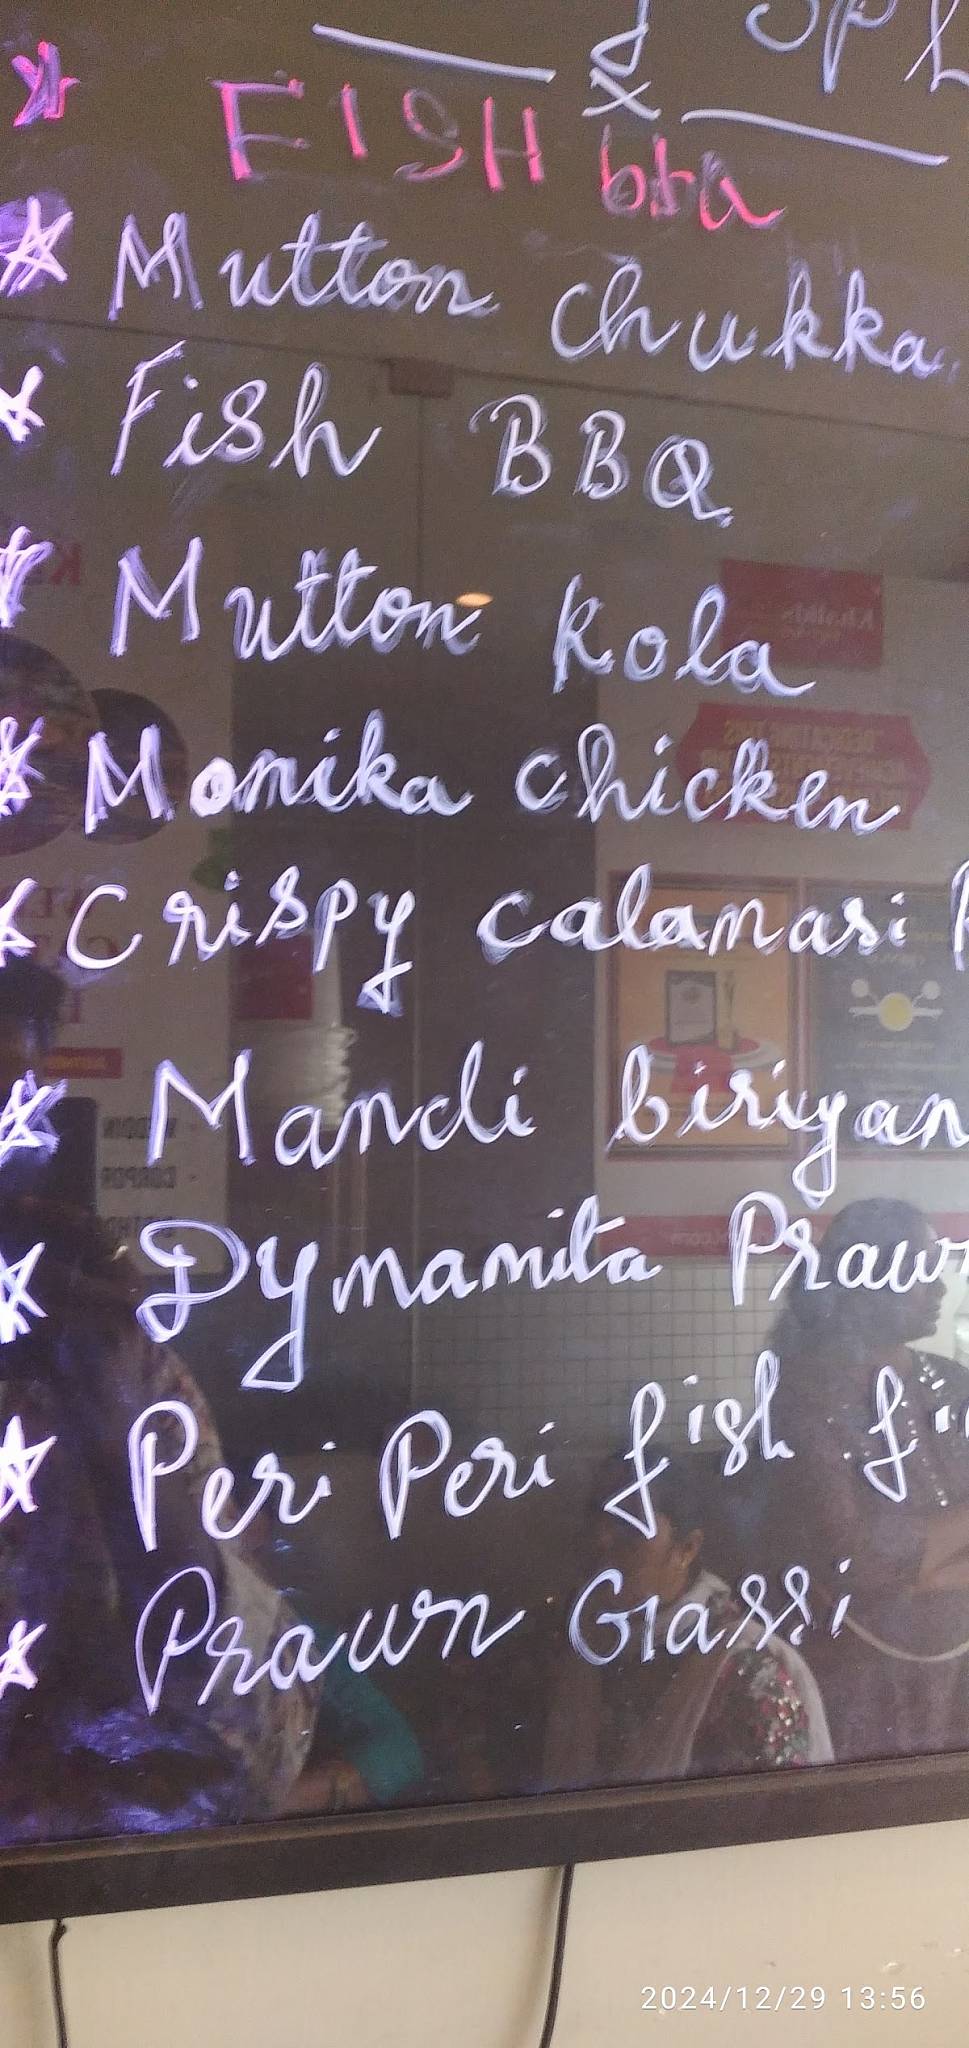 Spl
* FISH
* Mutton Chukka
* Fish BBQ
* Mutton Kola
* Monika chicken
* Crispy calamari
* Mandi biriyan
* Dynamita Prawn
* Peri Peri fish fi
* Prawn Gassi
2024/12/29 13:56